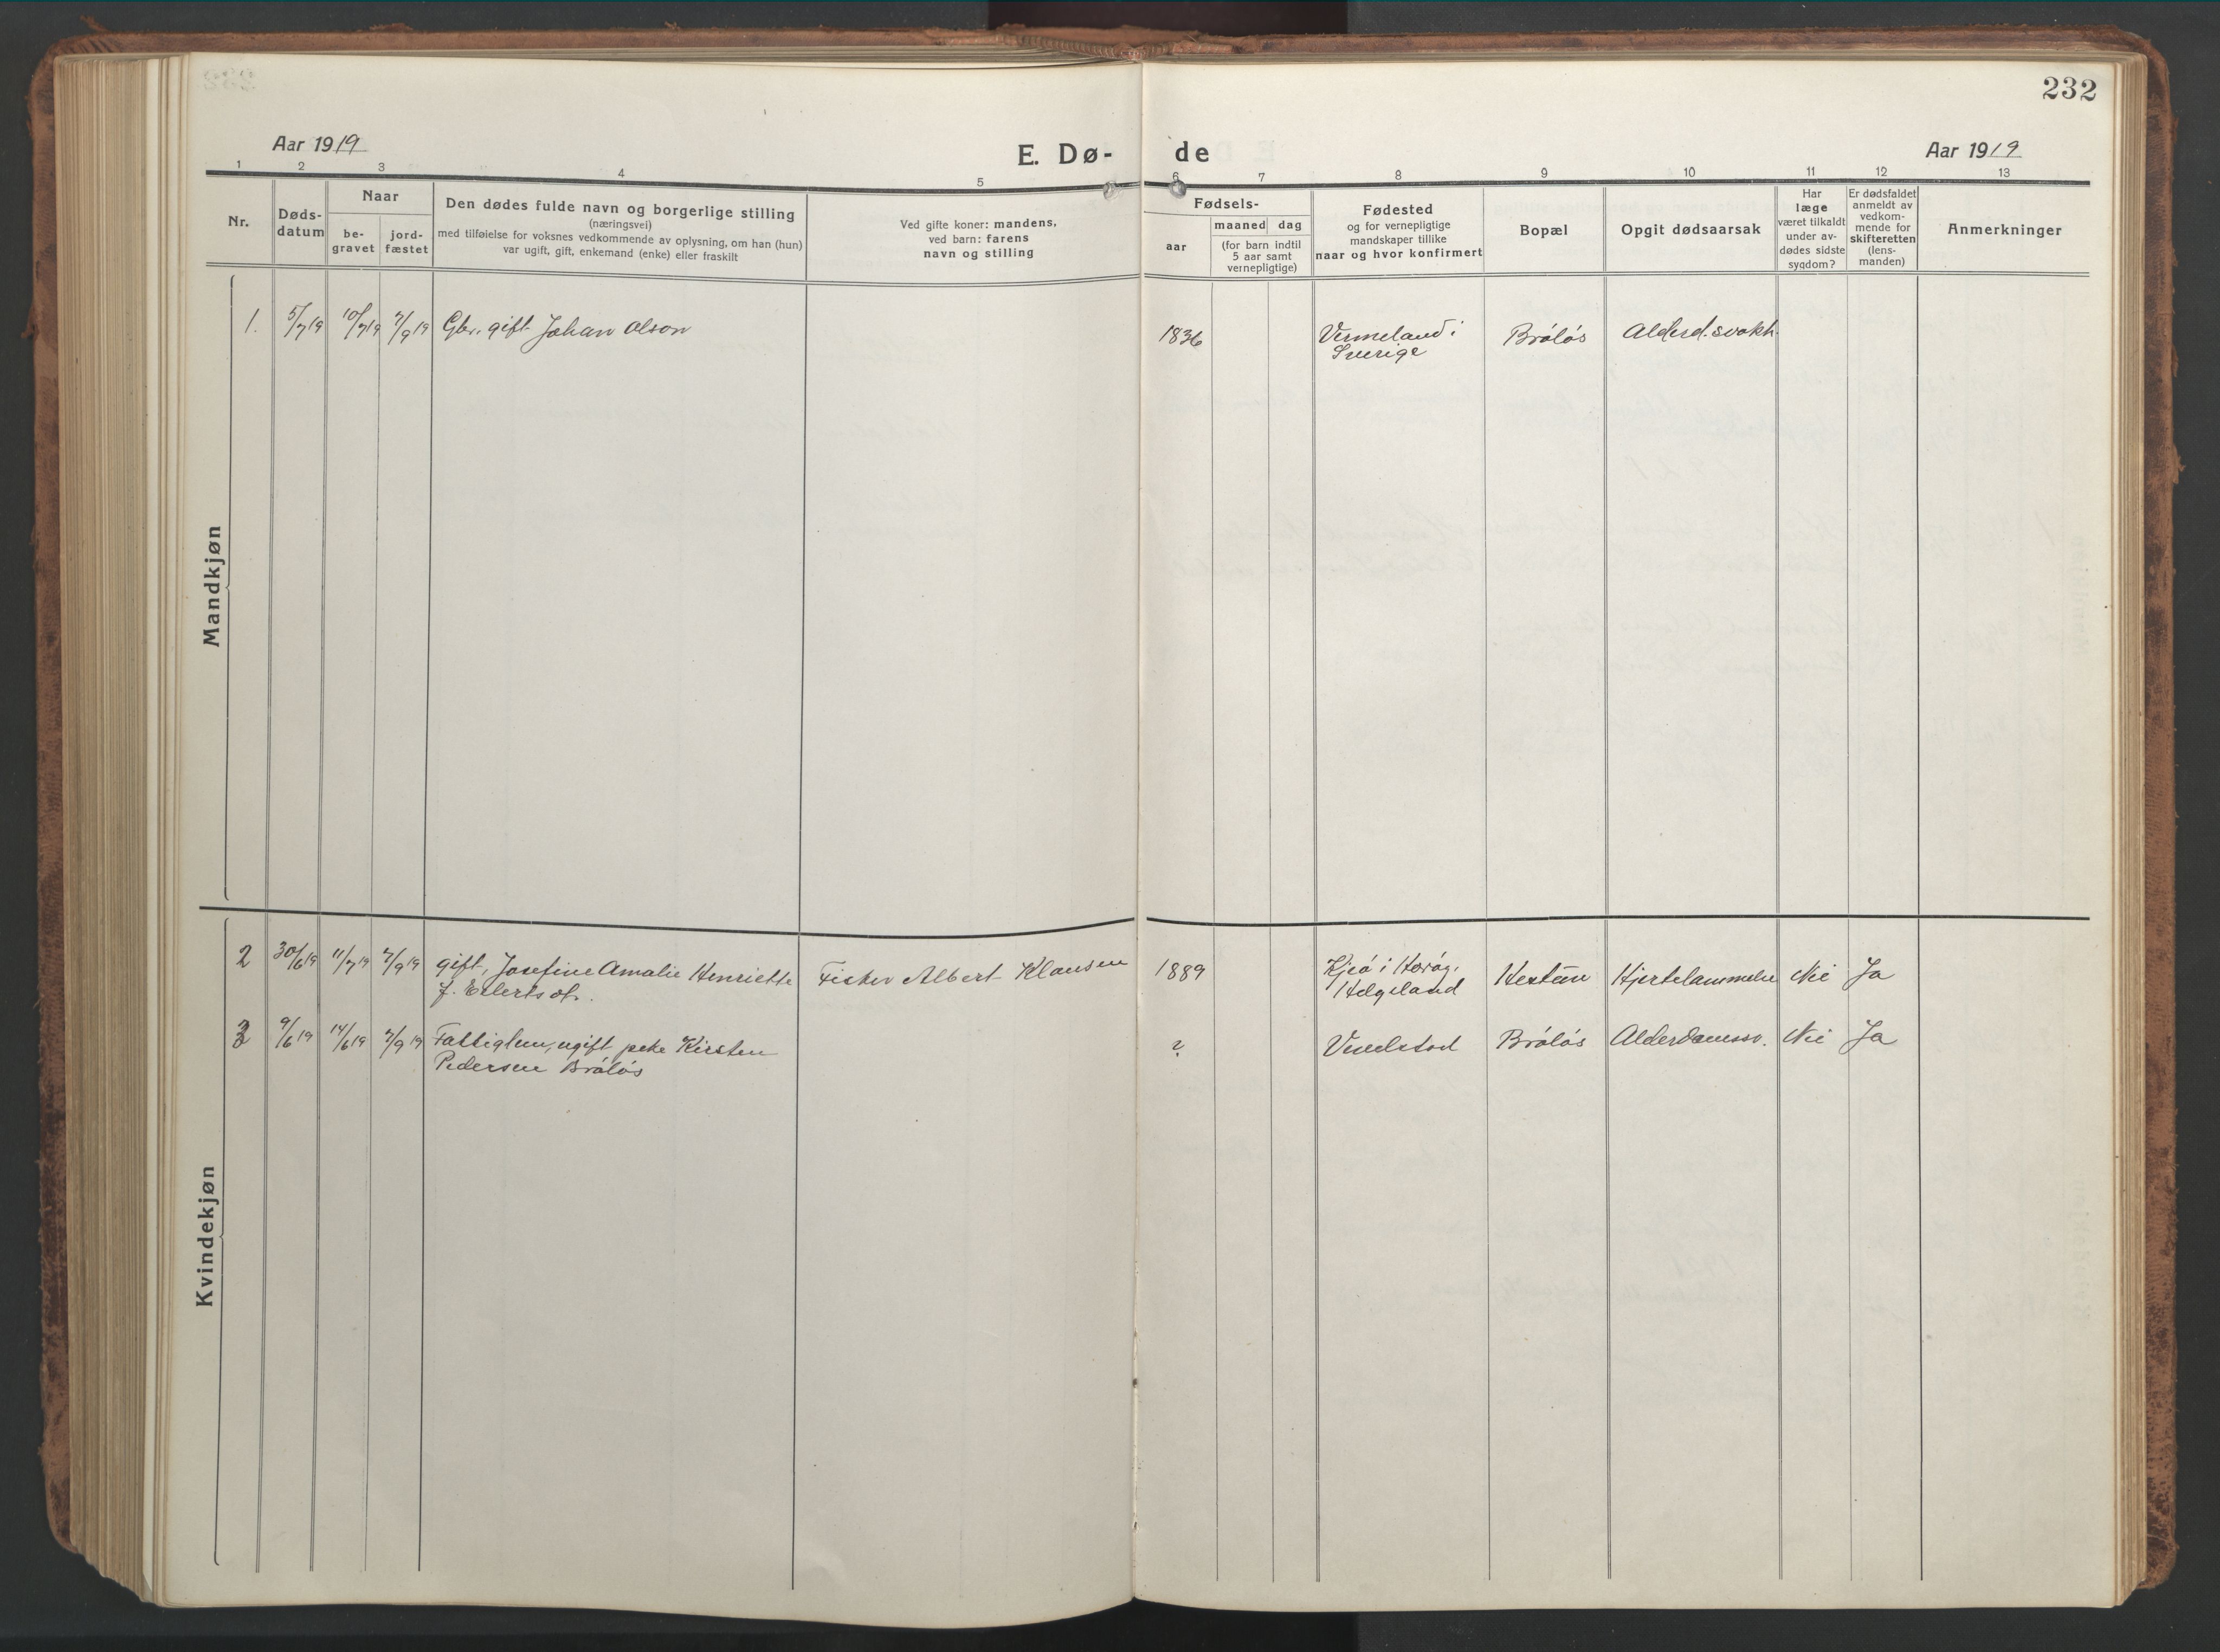 232
Aar 1919
E. Dø-
de
Aar 1919
1 2 3 4 5 6 7 8 9 10 11 12 13
Nr.
Døds-
datum
Naar
be-
gravet
jord-
fæstet
Den dødes fulde navn og borgerlige stilling
(næringsvei)
med tilføielse for voksnes vedkommende av oplysning, om han (hun)
var ugift, gift, enkemand (enke) eller fraskilt
Ved gifte koner: mandens,
ved barn: farens
navn og stilling
Fødsels-
aar
maaned dag
(for barn indtil
5 aar samt
vernepligtige)
Fødested
og for vernepligtige
mandskaper tillike
naar og hvor konfirmert
Bopæl
Opgit dødsaarsak
Har
læge
været tilkaldt
under av-
dødes sidste
sygdom?
Er dødsfaldet
anmeldt av
vedkom-
mende for
skifteretten
(lens-
manden)
Anmerkninger
Mandkjøn
1. 5/7 19 10/7 19 7/9 19 Gbr. gift Johan Olson 1836 Vermeland i Bråløs Alderd.svakh.
Sverige
Kvindekjøn
2 30/6 19 11/7 19 7/9 19 gift, Josefine Amalie Henriette Fisker Albert Klausen 1889 Kjeø i Herøg. Hestun Hjertelammelse Nei Ja
f. Eilertsdt. Helgeland
3 9/6 19 14/6 19 7/9 19 Fattiglem, ugift peke Kirsten ? Vevelstad Bråløs Alderdomssv. Nei Ja
Pedersen Bråløs